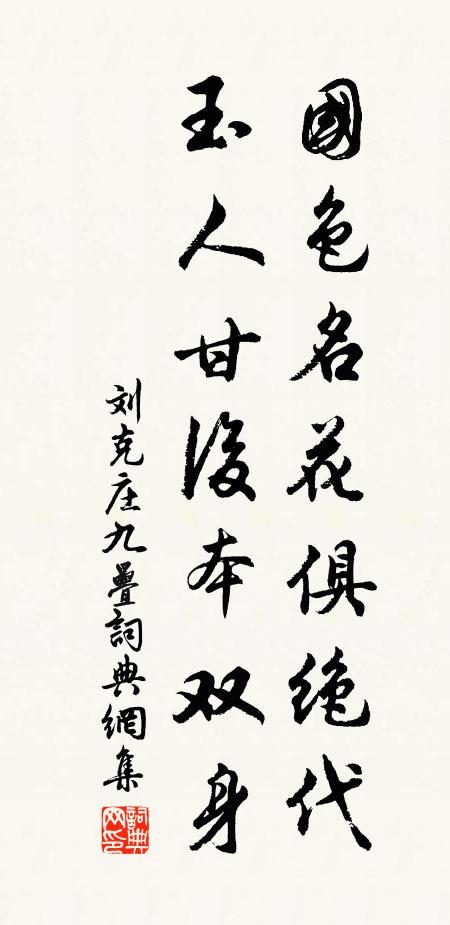 國色名花俱绝代
玉人甘後本双身
刘克庄九疊詞典網集
詞典
网印